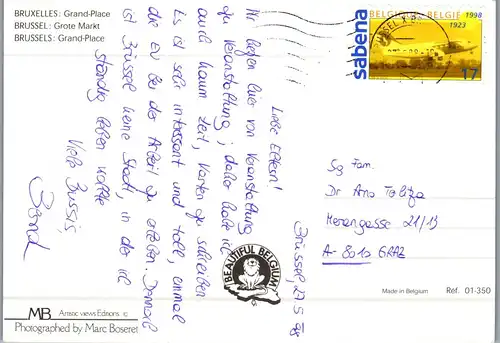 BRUXELLES: Grand-Place
BRUSSEL: Grote Markt
BRUSSELS: Grand-Place
sabena
BELGIQUE BELGIE 1998
1923
17
Brüssel, 27.5.98
Liebe Eltern!
Wir liegen hier von Veranstaltung
zu Veranstaltung; daher habe ich
auch kaum Zeit, Karten zu schreiben
Es ist sehr interessant und toll, einmal
die EU bei der Arbeit zu erleben. Dennoch
ist Brüssel keine Stadt, in der ich
ständig leben wollte
Viele Bussis,
BEAUTIFUL BELGIUM
Sg Fam.
Dr Arno
21/13
A-8010 GRAZ
Made in Belgium
Ref. 01-350
MB Artistic views Editions ©
Photographed by Marc Boseret